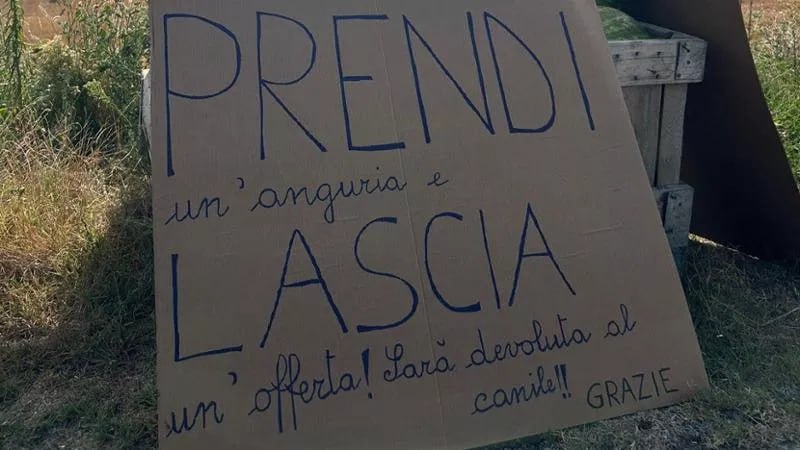 PRENDI
un'anguria e
LASCIA
un'offerta! Sarà devoluta al
canile!! GRAZIE